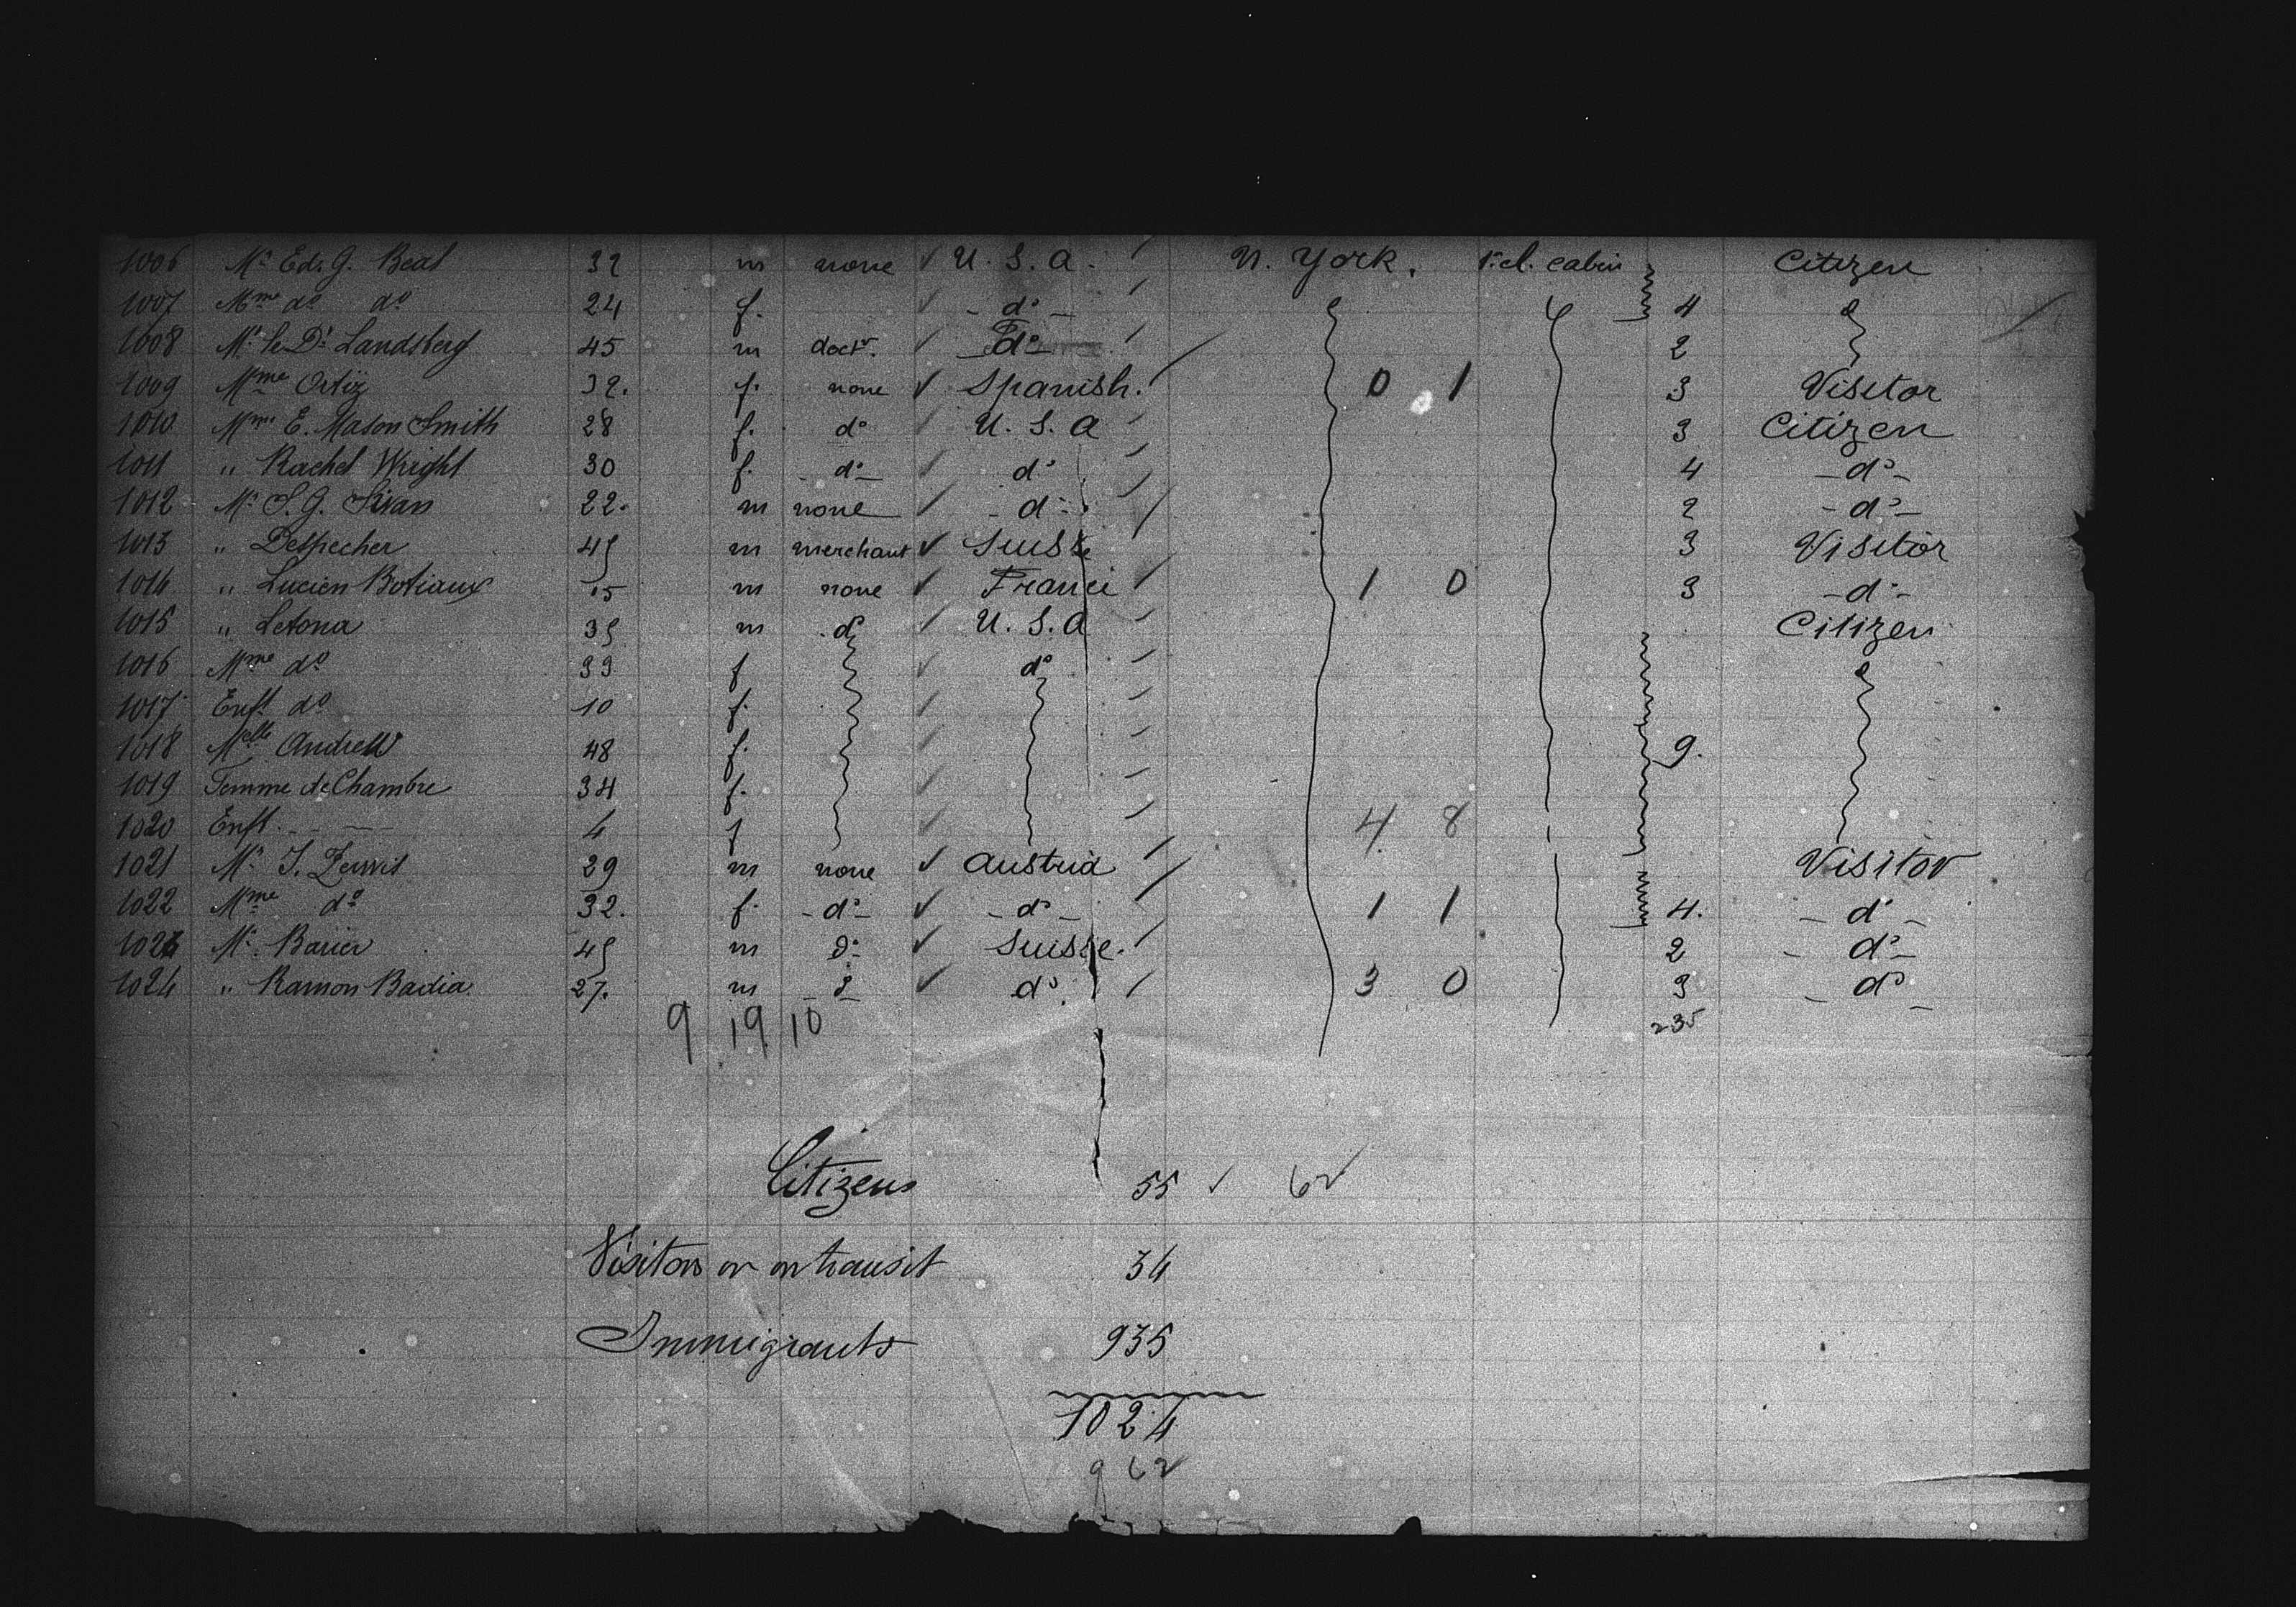 1006 Mr Ed. G. Beal 32 m none ✓ U. S. A. N. York. 1e cl. cabin Citizen
1007 Mme do do 24 f. - do - 4
1008 Mr le Dr Landsberg 45 m doctr. - do - 2
1009 Mme Ortiz 32. f. none ✓ Spanish. 0 1 3 Visitor
1010 Mme E. Mason Smith 28 f. do U. S. A 3 Citizen
1011 " Rachel Wright 30 f. - do - do 4 - do -
1012 Mr S. G. 22. m none - do - 2 - do -
1013 " Despecher 45 m merchant ✓ Suisse 3 Visitor
1014 " Lucien Botiaux 15 m none ✓ France 1 0 3 - do -
1015 " Letona 35 m do U. S. A Citizen
1016 Mme do 33 f do
1017 Enft do 10 f.
1018 Melle Andrew 48 f. 9.
1019 Femme de Chambre 34 f.
1020 Enft. 4 f 4 8
1021 Mr J. 29 m none ✓ Austria Visitor
1022 Mme do 32. f. - do - ✓ - do - 1 1 4. - do -
1023 Mr Barier 45 m do ✓ Suisse. 2 - do -
1024 " Ramon Badia. 27. m do ✓ do. 3 0 3 - do -
9 19 10 235
Citizens 55 ✓ 62
Visitors or on transit 34
Immigrants 935
1024
962